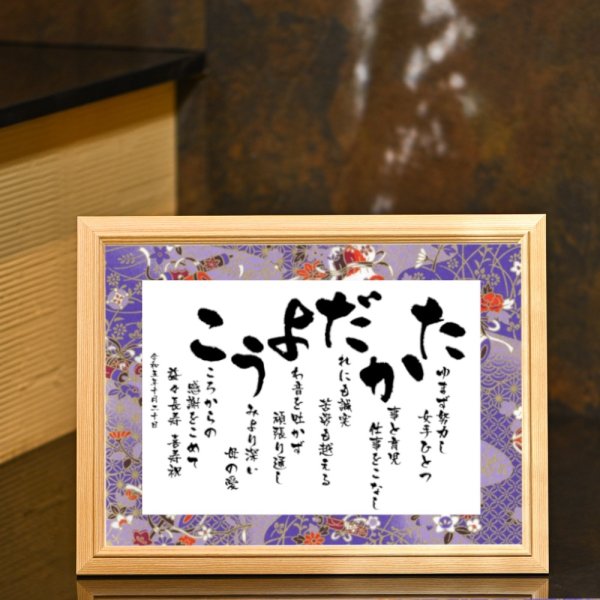 たゆまず努力し
女手ひとつ
か事と育児
仕事をこなし
だれにも誠実
苦労も越える
よわ音を吐かず
頑張り通し
うみより深い
母の愛
こころからの
感謝をこめて
益々長寿 喜寿祝
令和五年十月二十日